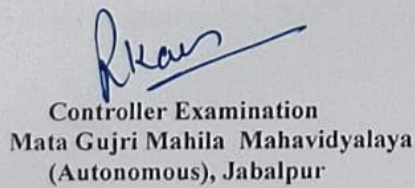 Controller Examination
Mata Gujri Mahila Mahavidyalaya
(Autonomous), Jabalpur